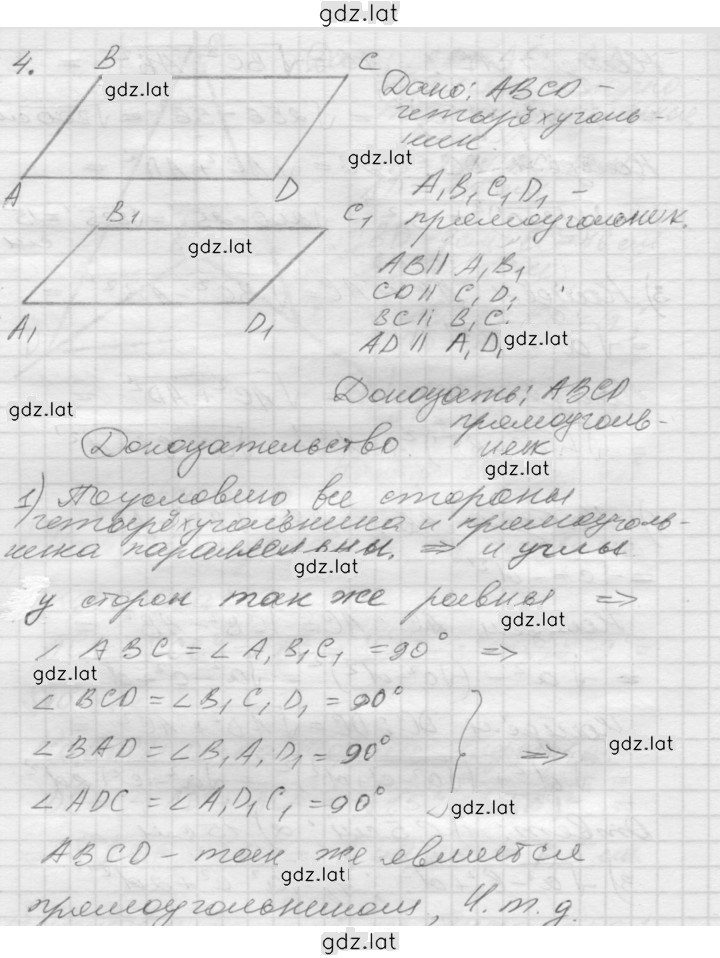 gdz.lat
4.
B
C
gdz.lat
A
D
Дано: ABCD –
четырёхуголь-
ник.
gdz.lat
A₁B₁C₁D₁ –
прямоугольник.
B₁
C₁
gdz.lat
A₁
D₁
AB || A₁B₁
CD || C₁D₁
BC || B₁C.
AD || A₁D₁
gdz.lat
Доказать: ABCD
прямоуголь-
ник
gdz.lat
gdz.lat
Доказательство
1) По условию все стороны
четырёхугольника и прямоуголь-
ника параллельны. => и углы
gdz.lat
у сторон так же равны =>
gdz.lat
∠ ABC = ∠ A₁B₁C₁ = 90° =>
gdz.lat
∠ BCD = ∠ B₁C₁D₁ = 90°
∠ BAD = ∠ B₁A₁D₁ = 90° =>
gdz.lat
∠ ADC = ∠ A₁D₁C₁ = 90°
gdz.lat
ABCD – так же является
gdz.lat
прямоугольником, Ч.т.д.
gdz.lat